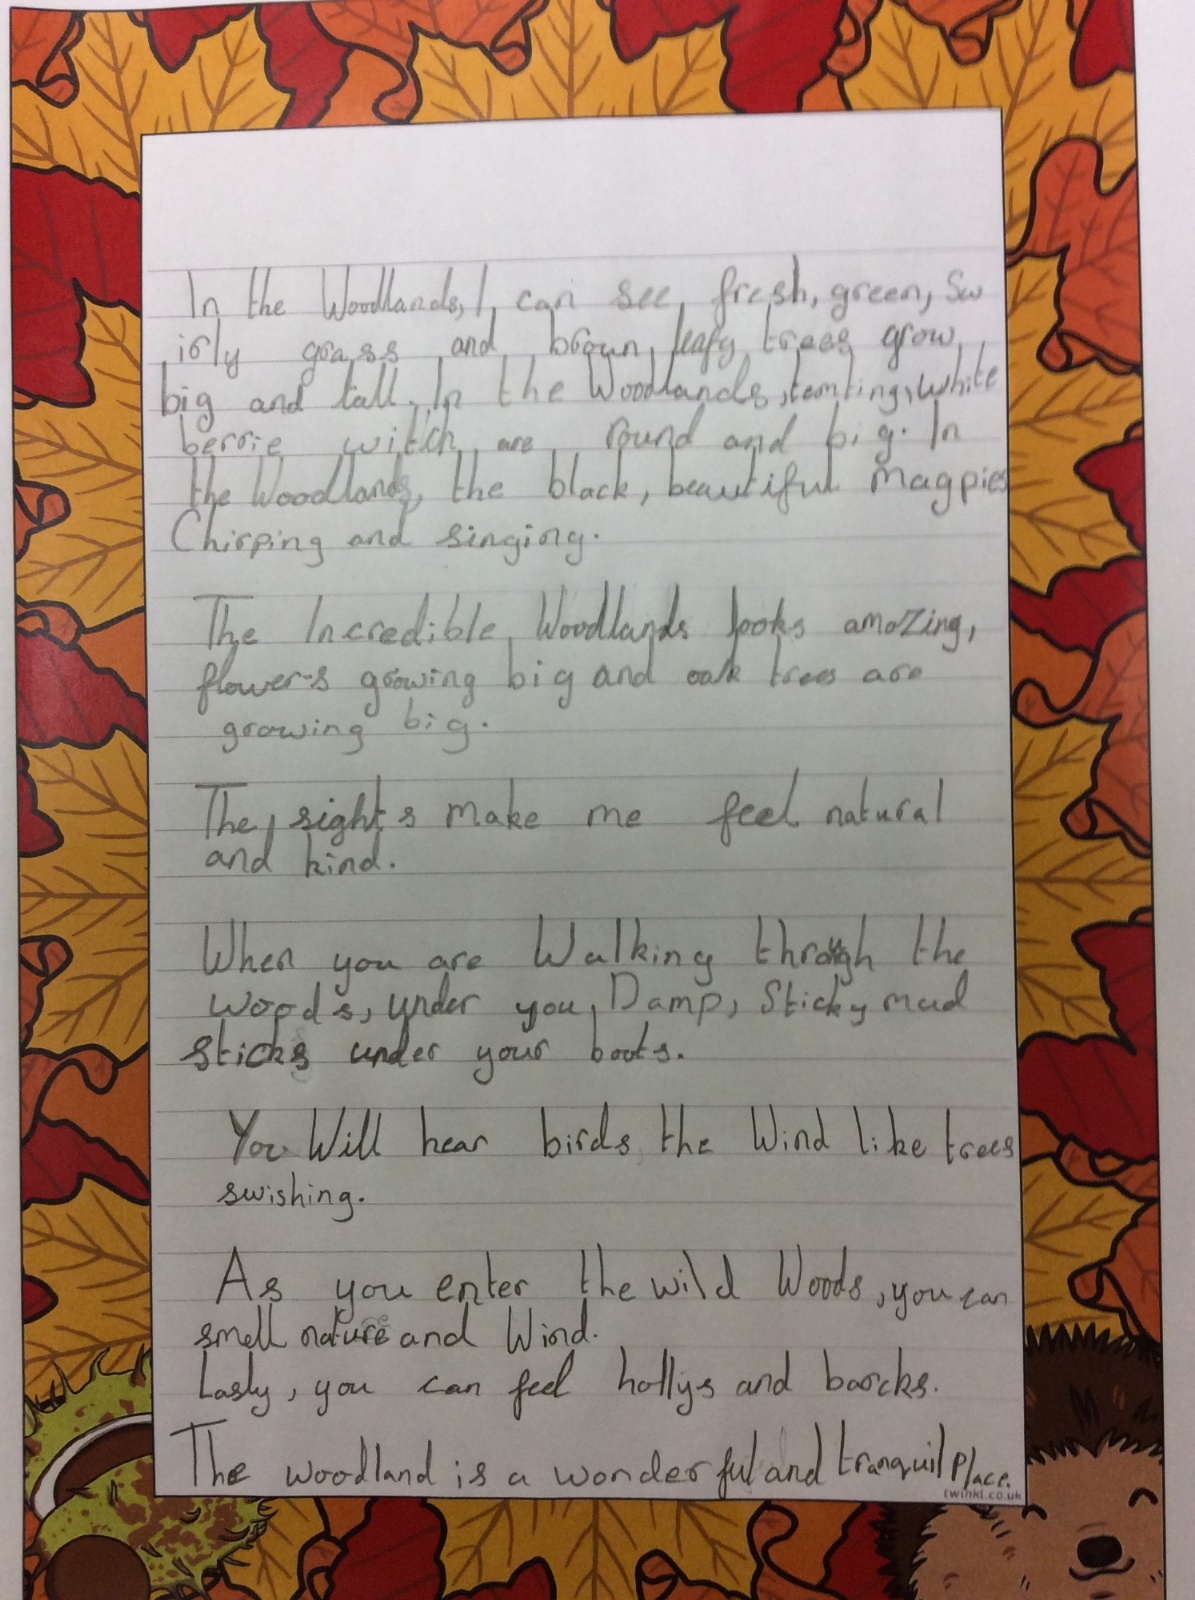 In the Woodlands, I can see fresh, green, Sw
irly grass and brown, leafy trees grow
big and tall. In the Woodlands, temting, white
berrie witch are round and big. In
the Woodlands, the black, beautiful Magpies
Chirping and singing.
The Incredible Woodlands looks amaZing,
flowers growing big and oak trees are
growing big.
The sights make me feel natural
and kind.
When you are Walking through the
woods, under you, Damp, Sticky mud
sticks under your boots.
You Will hear birds, the Wind like trees
swishing.
As you enter the wild Woods, you can
smell nature and Wind.
Lasly, you can feel hollys and barcks.
The woodland is a wonderful and tranquil Place.
twinkl.co.uk